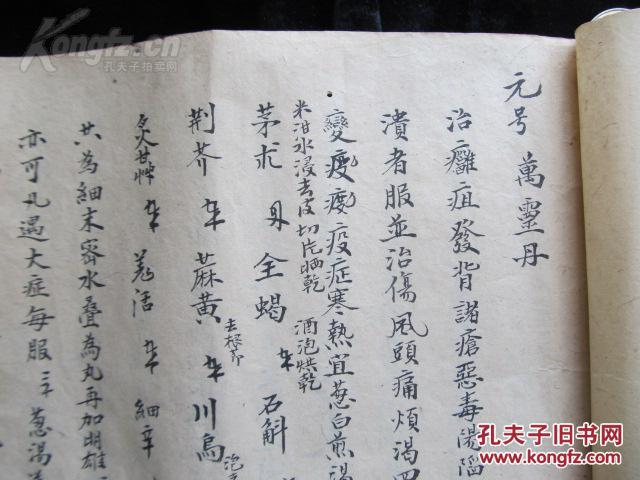 元号 萬靈丹
治癰疽發背諸瘡惡毒湯陷
潰者服並治傷风頭痛煩渴四
變疫疫症寒熱宜葱白煎湯
米泔水浸去皮切片晒乾 酒泡烘乾
茅朮 全蝎 石斛
荆芥 蔴黄 去根节 川烏
炙甘艸 羌活 細辛
共為細末密水叠為丸再加明雄
亦可丸遇大症每服 葱湯
孔夫子旧书网
Kongfz.com
孔夫子拍卖网
孔夫子旧书网